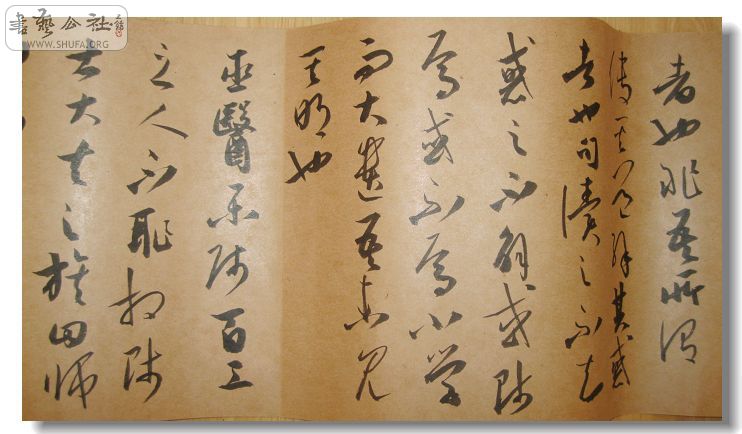 書藝公社
WWW.SHUFA.ORG
者也非吾所謂
傳其道解其惑
者也句讀之不知
惑之不解或師
焉或不焉小學
而大遺吾未見
其明也
巫醫樂師百工
之人不恥相師
士大夫之族曰師